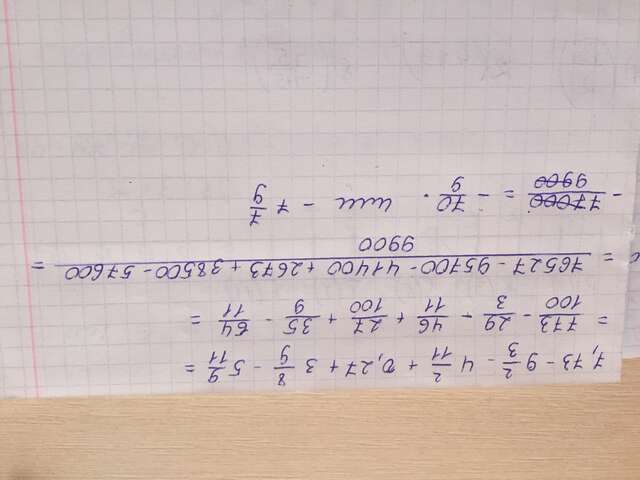 7,73 - 9 2/3 - 4 2/11 + 0,27 + 3 8/9 - 5 9/11 =
= 773/100 - 29/3 - 46/11 + 27/100 + 35/9 - 64/11 =
= (76527 - 95700 - 41400 + 2673 + 38500 - 57600)/9900 =
- 77000/9900 = - 70/9 . или - 7 7/9